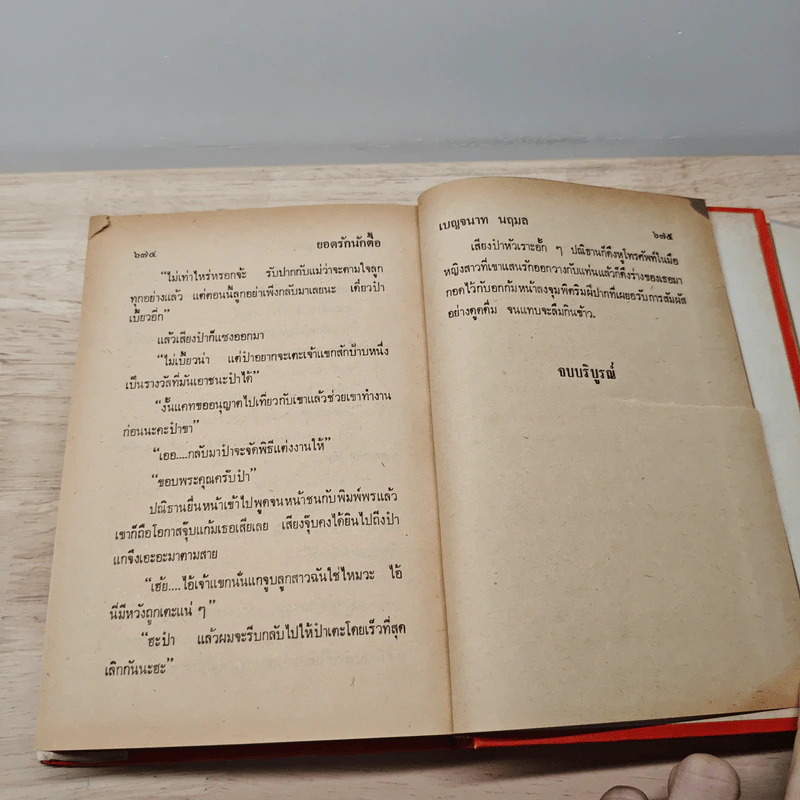 ๖๗๔ ยอดรักนักตื๊อ
“ไม่เท่าไหร่หรอกจ้ะ รับปากกับแม่ว่าจะตามใจลูก
ทุกอย่างแล้ว แต่ตอนนี้ลูกอย่าเพิ่งกลับมาเลยนะ เดี๋ยวป๋า
เบี้ยวอีก”
แล้วเสียงป๋าก็แซงออกมา
“ไม่เบี้ยวน่า แต่ป๋าอยากจะเตะเจ้าแขกสักป๊าบหนึ่ง
เป็นรางวัลที่มันเอาชนะป๋าได้”
“งั้นแคทขออนุญาตไปเที่ยวกับเขาแล้วช่วยเขาทำงาน
ก่อนนะคะป๋าขา”
“เออ....กลับมาป๋าจะจัดพิธีแต่งงานให้”
“ขอบพระคุณครับป๋า”
ปณิธานยื่นหน้าเข้าไปพูดจนหน้าชนกับพิมพ์พรแล้ว
เขาก็ถือโอกาสจุ๊บแก้มเธอเสียเลย เสียงจุ๊บคงได้ยินไปถึงป๋า
แกจึงเอะอะมาตามสาย
“เฮ้ย....ไอ้เจ้าแขกนั่นแกจูบลูกสาวฉันใช่ไหมวะ ไอ้
นี่มีหวังถูกเตะแน่ ๆ”
“ฮะป๋า แล้วผมจะรีบกลับไปให้ป๋าเตะโดยเร็วที่สุด
เลิกกันนะฮะ”
เบญจนาท นฤมล ๖๗๕
เสียงป๋าหัวเราะอั้ก ๆ ปณิธานก็ดึงหูโทรศัพท์ในมือ
หญิงสาวที่เขาแสนรักออกวางกับแท่นแล้วก็ดึงร่างของเธอมา
กอดไว้กับอกก้มหน้าลงจุมพิตริมฝีปากที่เผยอรับการสัมผัส
อย่างดูดดื่ม จนแทบจะลืมกินข้าว.
จบบริบูรณ์